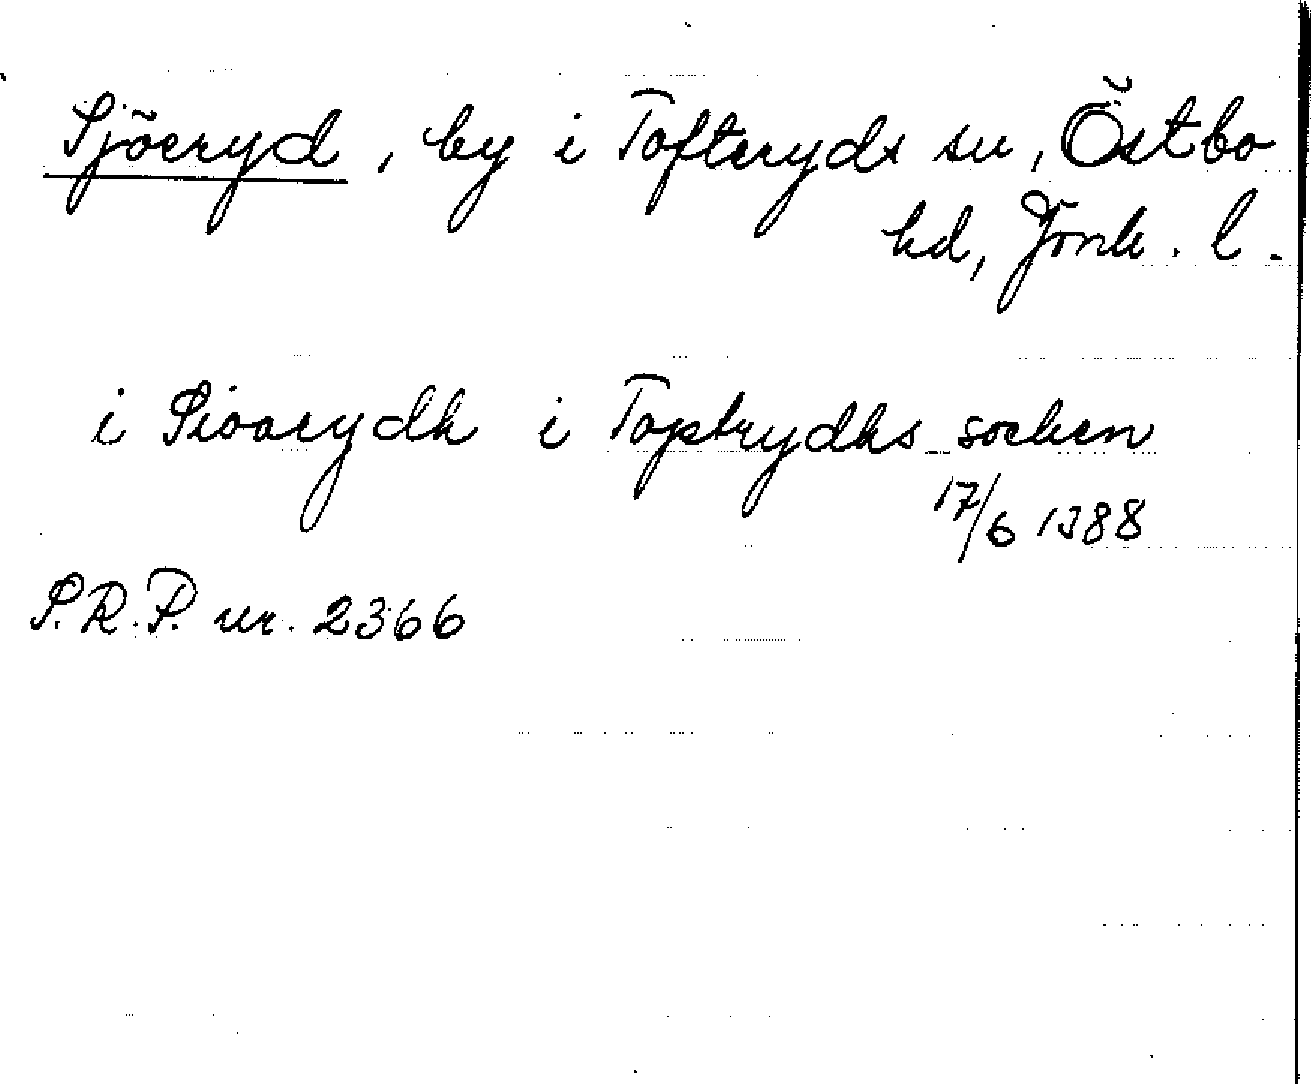 Sjöeryd, by i Tofteryds sn, Östbo
hd, Jönk. l.
i Sioarydh i Topstrydhs sochen
17/6 1388
S.R.P. nr. 2366